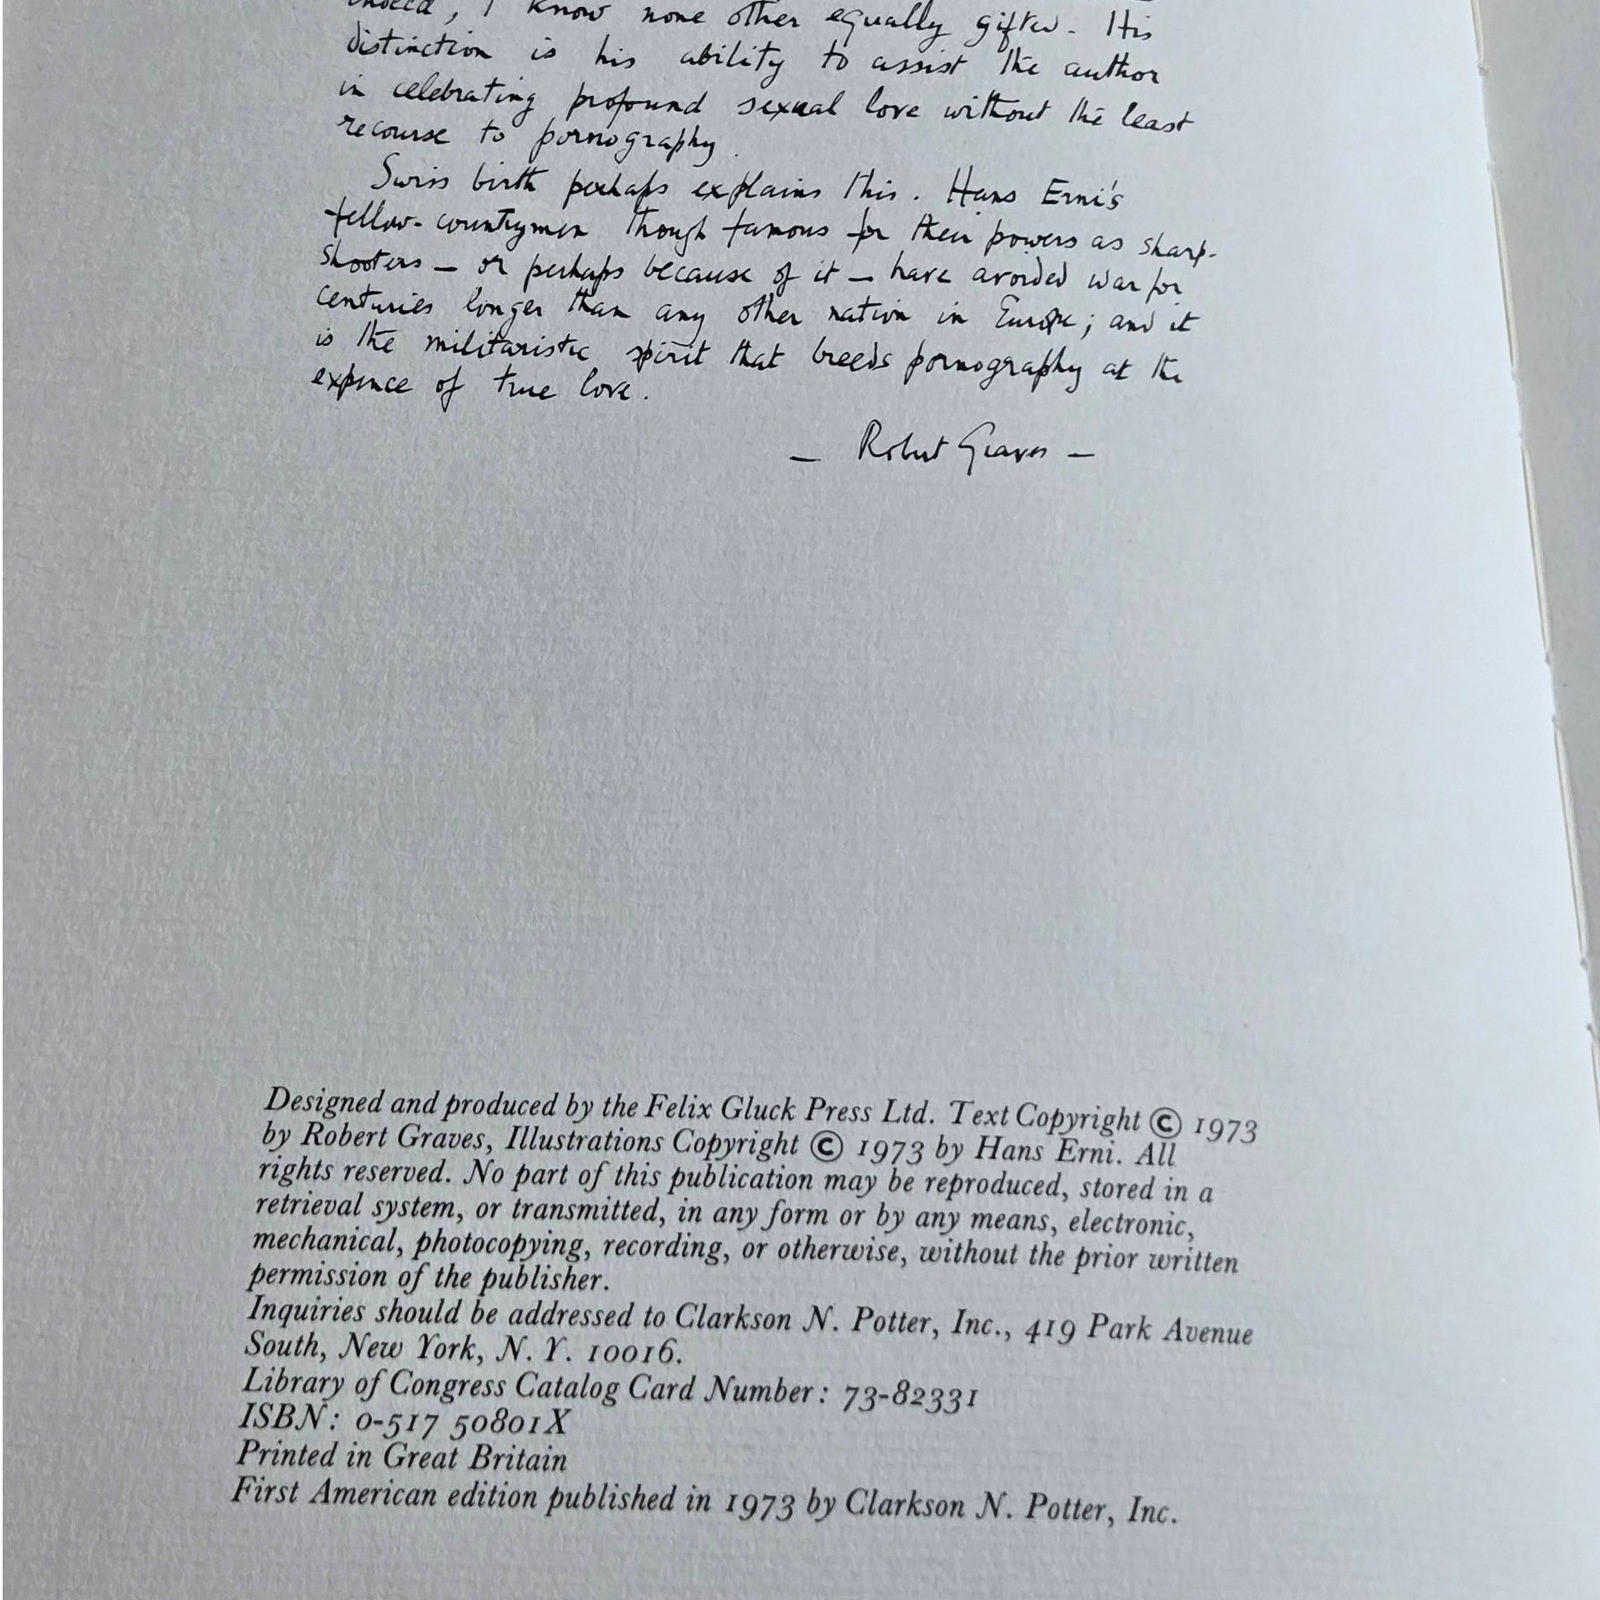 indeed, I know none other equally gifted. His
distinction is his ability to assist the author
in celebrating profound sexual love without the least
recourse to pornography.
Swiss birth perhaps explains this. Hans Erni's
fellow-countrymen though famous for their powers as sharp-
shooters – or perhaps because of it – have avoided war for
centuries longer than any other nation in Europe; and it
is the militaristic spirit that breeds pornography at the
expence of true love.
– Robert Graves –
Designed and produced by the Felix Gluck Press Ltd. Text Copyright © 1973
by Robert Graves, Illustrations Copyright © 1973 by Hans Erni. All
rights reserved. No part of this publication may be reproduced, stored in a
retrieval system, or transmitted, in any form or by any means, electronic,
mechanical, photocopying, recording, or otherwise, without the prior written
permission of the publisher.
Inquiries should be addressed to Clarkson N. Potter, Inc., 419 Park Avenue
South, New York, N. Y. 10016.
Library of Congress Catalog Card Number: 73-82331
ISBN: 0-517 50801X
Printed in Great Britain
First American edition published in 1973 by Clarkson N. Potter, Inc.